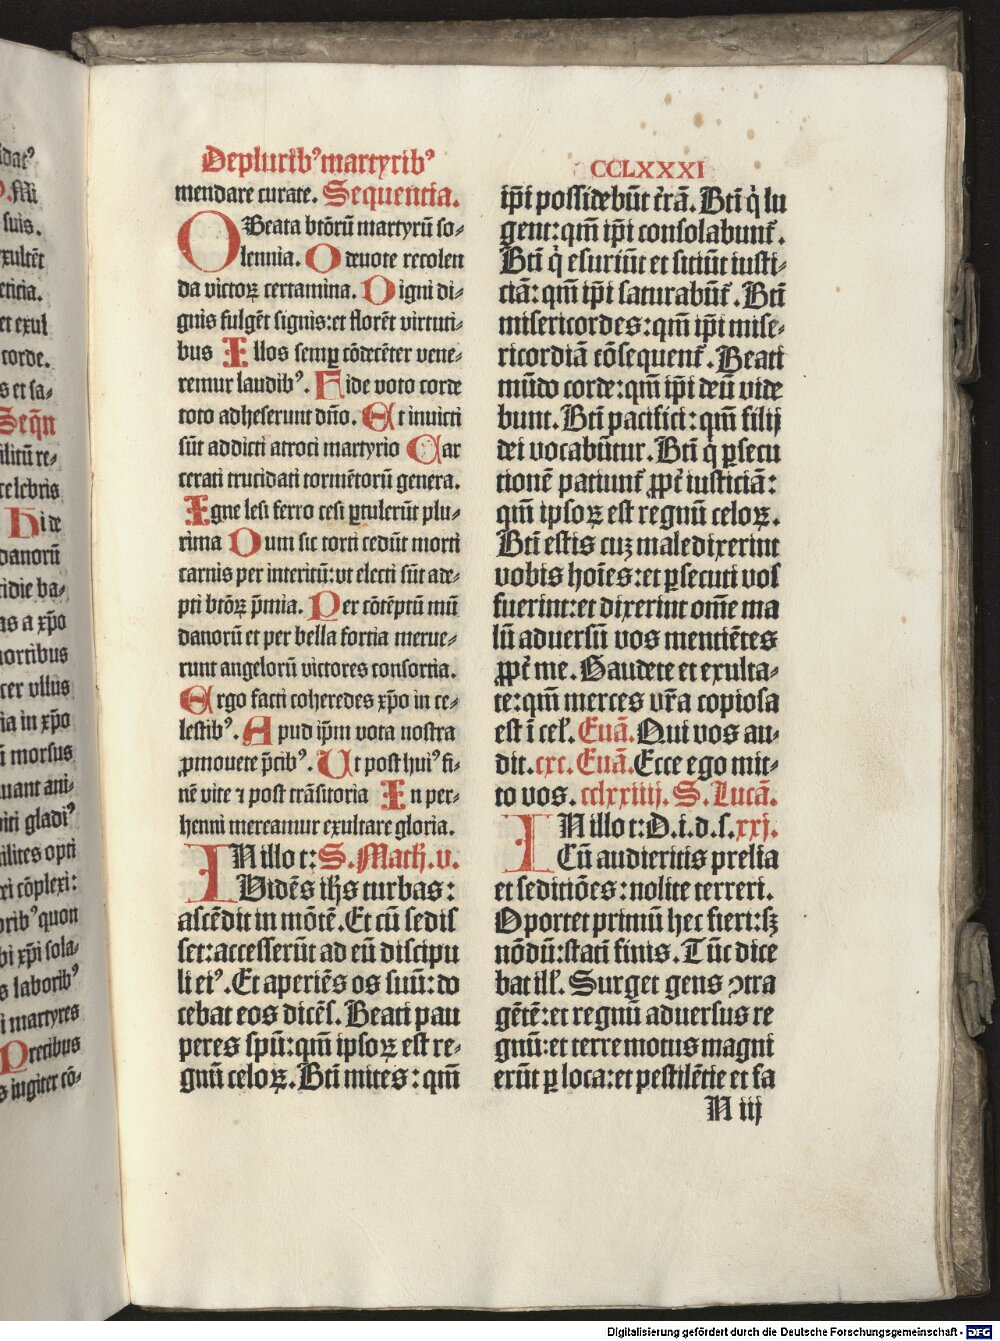 idat⁹
Mi
suis.
exultēt
et exul
corde.
s et sa⸗
Seq̄n
ilitū re⸗
celebris
Hi de
danorū
idie ba⸗
as a xp̄o
mortibus
cer vllus
ia in xp̄o
morsus
uant ani⸗
iti gladi⁹
ilites opti
xi cōplexi:
orib⁹ quon
bi xp̄i sola⸗
s laborib⁹
i martyres
Precibus
s iugiter cō⸗
De plurib⁹ martyrib⁹
mendare curate. Sequentia.
O Beata btōrū martyrū so⸗
lennia. O deuote recolen
da victoꝝ certamina. Digni di⸗
gnis fulgēt signis: et florēt virtuti⸗
bus Illos semꝑ cōdecēter vene⸗
remur laudib⁹. Fide voto corde
toto adheserunt dn̄o. Et inuicti
sūt addicti atroci martyrio Car
cerati trucidati tormētorū genera.
Igne lesi ferro cesi ꝑtulerūt plu⸗
rima Dum sic torti cedūt morti
carnis per interitū: vt electi sūt ade⸗
pti btōꝝ p̄mia. Per cōtēptū mū
danorū et per bella fortia merue⸗
runt angelorū victores consortia.
Ergo facti coheredes xp̄o in ce⸗
lestib⁹. Apud ip̄m vota nostra
ꝓmouete p̄cib⁹. Ut post hui⁹ fi⸗
nē vite ⁊ post trāsitoria In per⸗
henni mereamur exultare gloria.
IN illo t: S. Math. v.
Uidēs ih̄s turbas:
ascēdit in mōtē. Et cū sedis
set: accesserūt ad eū discipu
li ei⁹. Et aperiēs os suū: do
cebat eos dicēs. Beati pau
peres spū: qm̄ ipsoꝝ est re⸗
gnū celoꝝ. Bt̄i mites: qm̄
CCLXXXI
ip̄i possidebūt t̄rā. Bt̄i q̇ lu
gent: qm̄ ip̄i consolabunt᷑.
Bt̄i q̇ esuriūt et sitiūt iusti⸗
ciā: qm̄ ip̄i saturabūt᷑. Bt̄i
misericordes: qm̄ ip̄i mise⸗
ricordiā cōsequent᷑. Beati
mūdo corde: qm̄ ip̄i deū vide
bunt. Bt̄i pacifici: qm̄ filij
dei vocabūtur. Bt̄i q̇ ꝑsecu
tionē patiunt᷑ ꝓpt̄ iusticiā:
qm̄ ipsoꝝ est regnū celoꝝ.
Bt̄i estis cuꝫ maledixerint
vobis hoīes: et ꝑsecuti vos
fuerint: et dixerint om̄e ma
lū aduersū vos mentiētes
ꝓpt̄ me. Gaudete et exulta⸗
te: qm̄ merces vr̄a copiosa
est ī cel᷑. Euā. Qui vos au⸗
dit. cxc. Euā. Ecce ego mit⸗
to vos. cclxxiiij. S. Lucā.
IN illo t: D. i. d. s. xxj.
Cū audieritis prelia
et seditiōes: nolite terreri.
Oportet primū hec fieri: sꝫ
nōdū: statī finis. Tūc dice
bat ill᷑. Surget gens ↄtra
gētē: et regnū aduersus re
gnū: et terre motus magni
erūt ꝑ loca: et pestilētie et fa
N iij
Digitalisierung gefördert durch die Deutsche Forschungsgemeinschaft - DFG